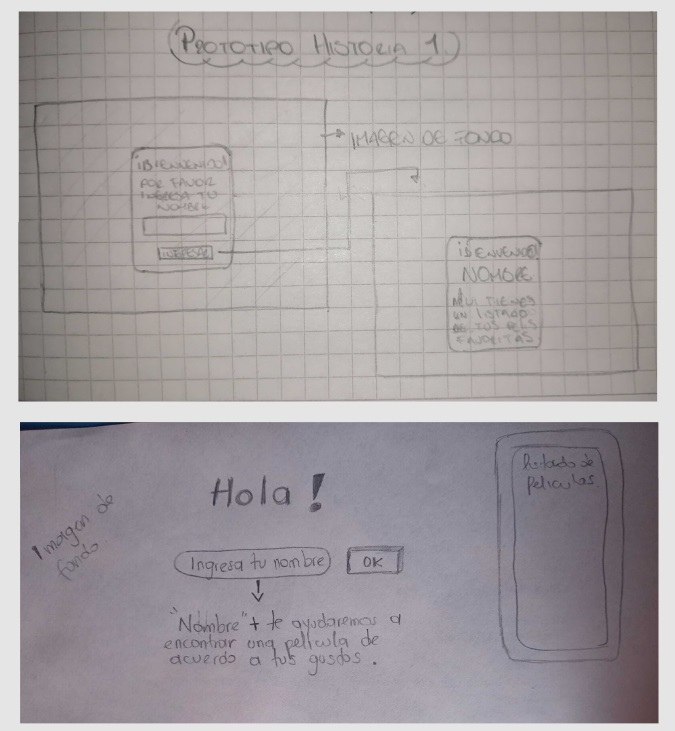 PROTOTIPO HISTORIA 1.
IMAGEN DE FONDO
¡BIENVENIDO!
POR FAVOR
INGRESA TU
NOMBRE
INGRESAR
¡BIENVENIDO!
NOMBRE
AQUI TIENES
UN LISTADO
DE TUS PELIS
FAVORITAS
Hola!
Imagen de
fondo.
Ingresa tu nombre
OK
"Nombre" + te ayudaremos a
encontrar una película de
acuerdo a tus gustos.
listado de
películas